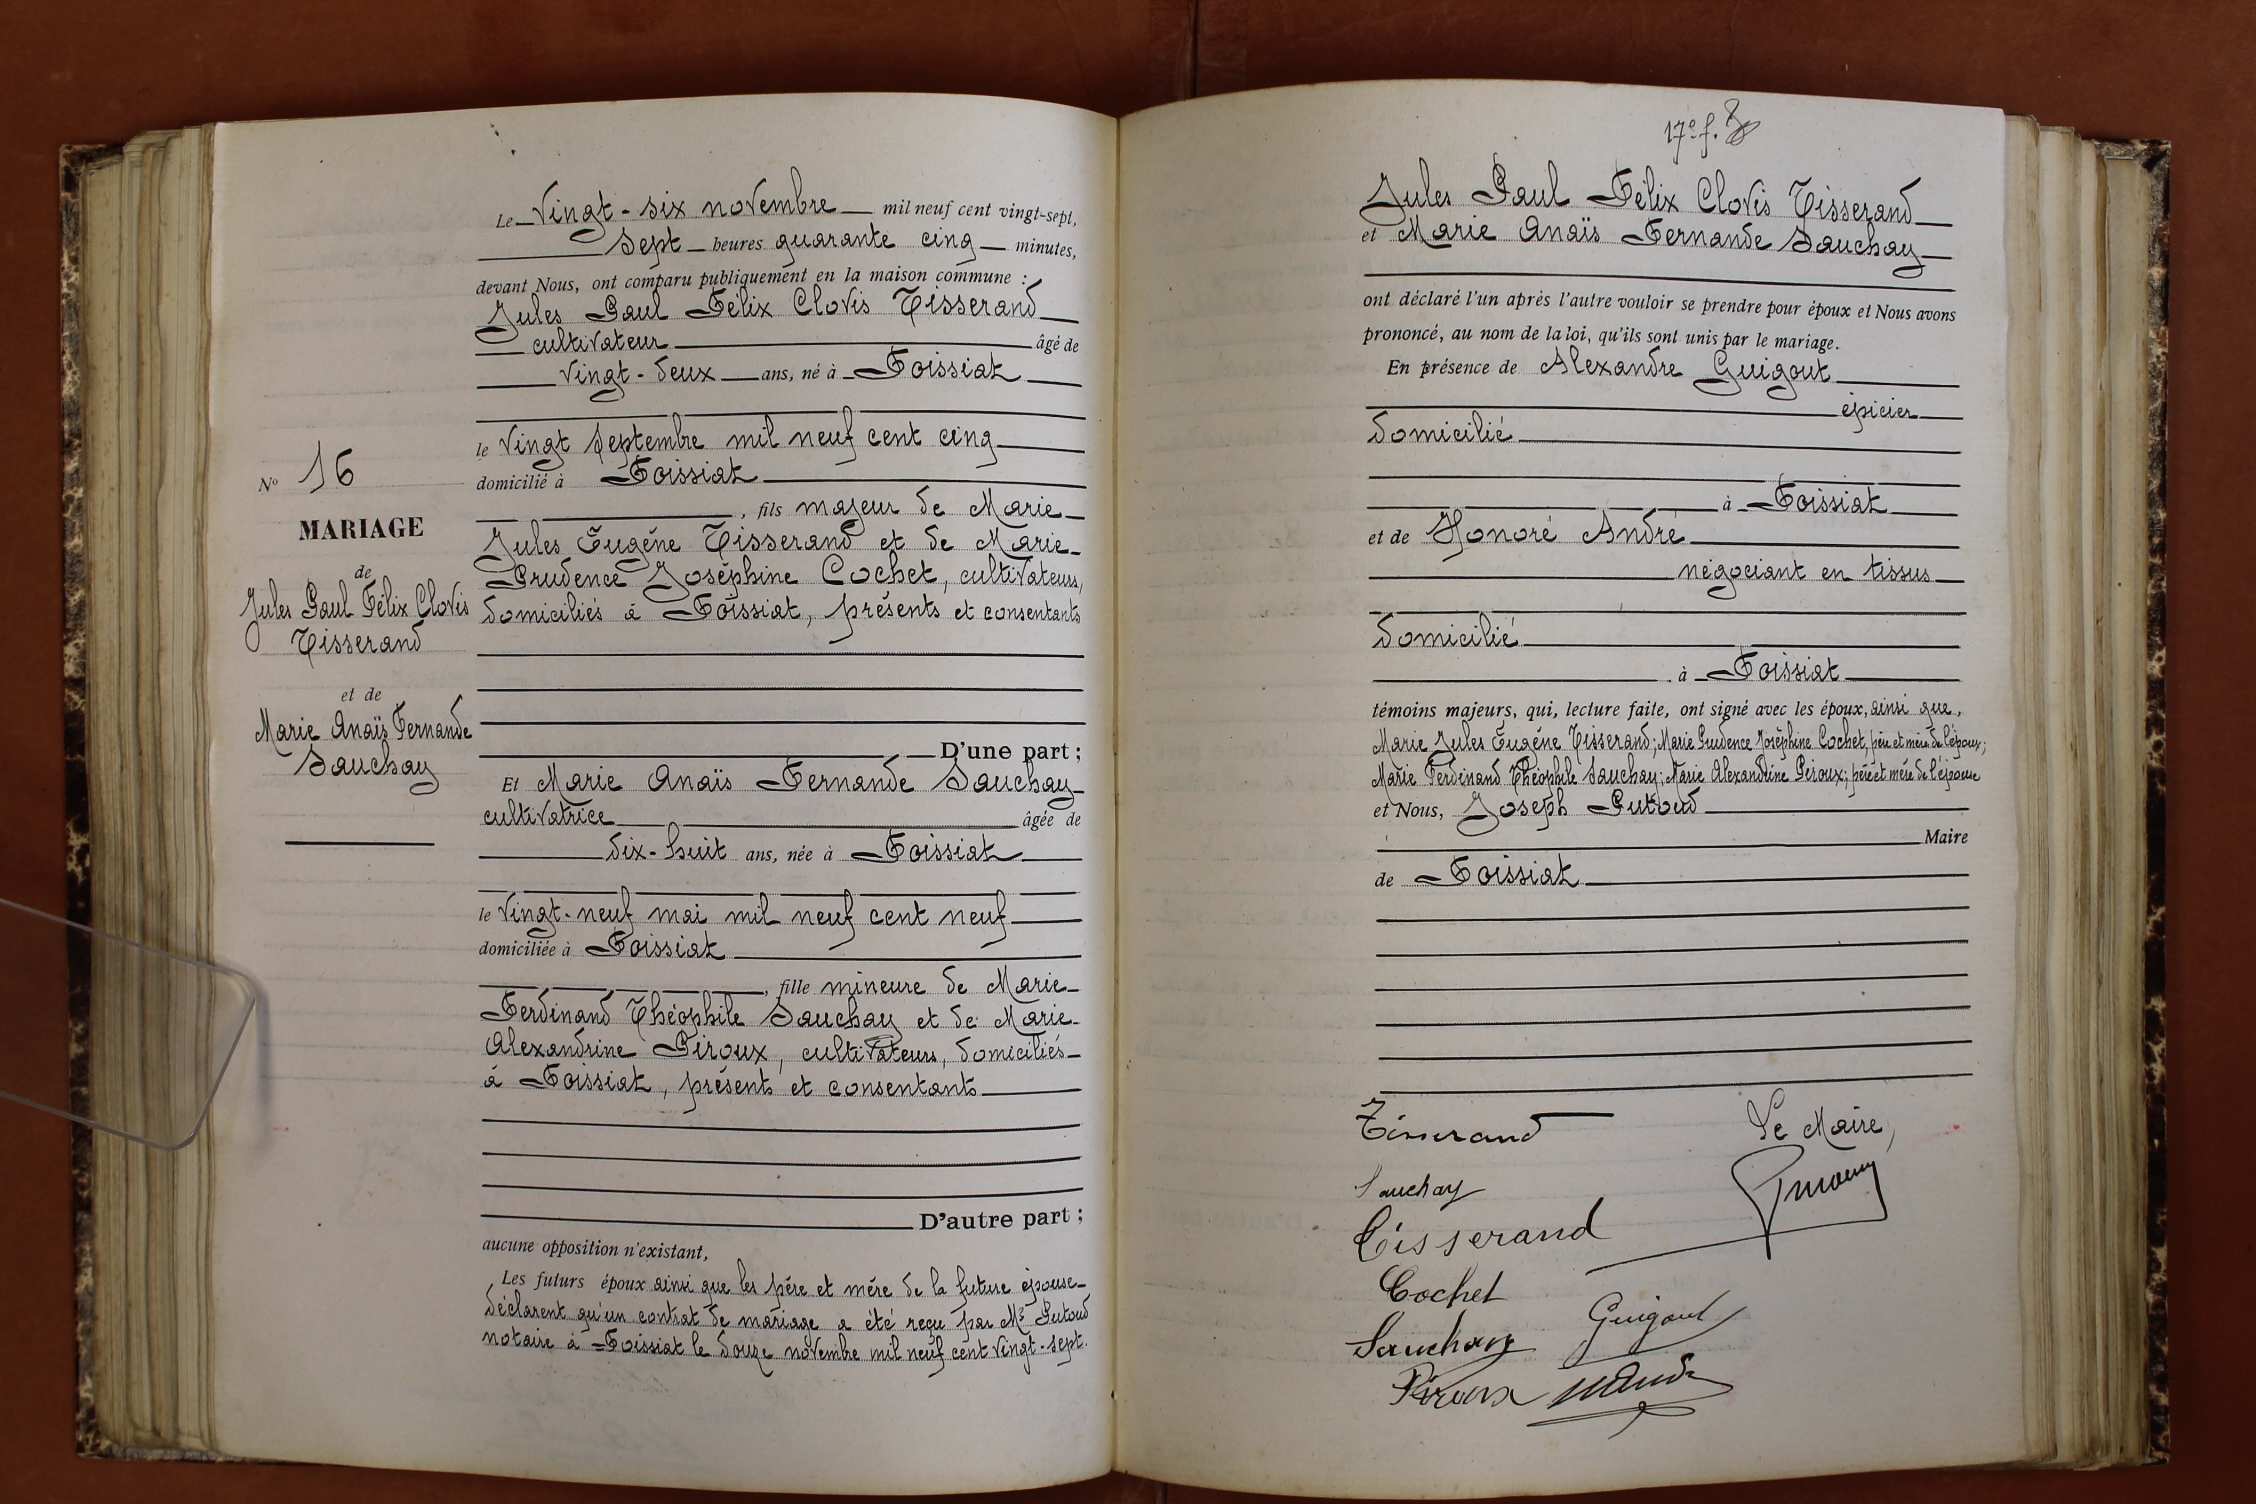 Le vingt-six novembre mil neuf cent vingt-sept,
sept heures quarante cinq minutes,
devant Nous, ont comparu publiquement en la maison commune :
Jules Paul Félix Clovis Tisserand
cultivateur âgé de
vingt-deux ans, né à Foissiat
le vingt septembre mil neuf cent cinq
domicilié à Foissiat
, fils majeur de Marie
Jules Eugène Tisserand et de Marie
Prudence Joséphine Cochet, cultivateurs,
domiciliés à Foissiat, présents et consentants
D'une part ;
Et Marie Anaïs Fernande Sauchay
cultivatrice âgée de
dix-huit ans, née à Foissiat
le vingt-neuf mai mil neuf cent neuf
domiciliée à Foissiat
, fille mineure de Marie
Ferdinand Théophile Sauchay et de Marie
Alexandrine Piroux, cultivateurs, domiciliés
à Foissiat, présents et consentants
D'autre part ;
aucune opposition n'existant,
Les futurs époux ainsi que les père et mère de la future épouse
déclarent qu'un contrat de mariage a été reçu par Me Putoud
notaire à Foissiat le douze novembre mil neuf cent vingt-sept.
No 16
MARIAGE
de
Jules Paul Félix Clovis
Tisserand
et de
Marie Anaïs Fernande
Sauchay
17e f.
Jules Paul Félix Clovis Tisserand
et Marie Anaïs Fernande Sauchay
ont déclaré l'un après l'autre vouloir se prendre pour époux et Nous avons
prononcé, au nom de la loi, qu'ils sont unis par le mariage.
En présence de Alexandre Guigout
épicier
domicilié
à Foissiat
et de Honoré André
négociant en tissus
domicilié
à Foissiat
témoins majeurs, qui, lecture faite, ont signé avec les époux, ainsi que,
Marie Jules Eugène Tisserand; Marie Prudence Joséphine Cochet, père et mère de l'époux;
Marie Ferdinand Théophile Sauchay; Marie Alexandrine Piroux; père et mère de l'épouse
et Nous, Joseph Putoud
Maire
de Foissiat
Tisserand
Le Maire,
Sauchay
Tisserand
Cochet
Guigout
Sauchay
Piroux